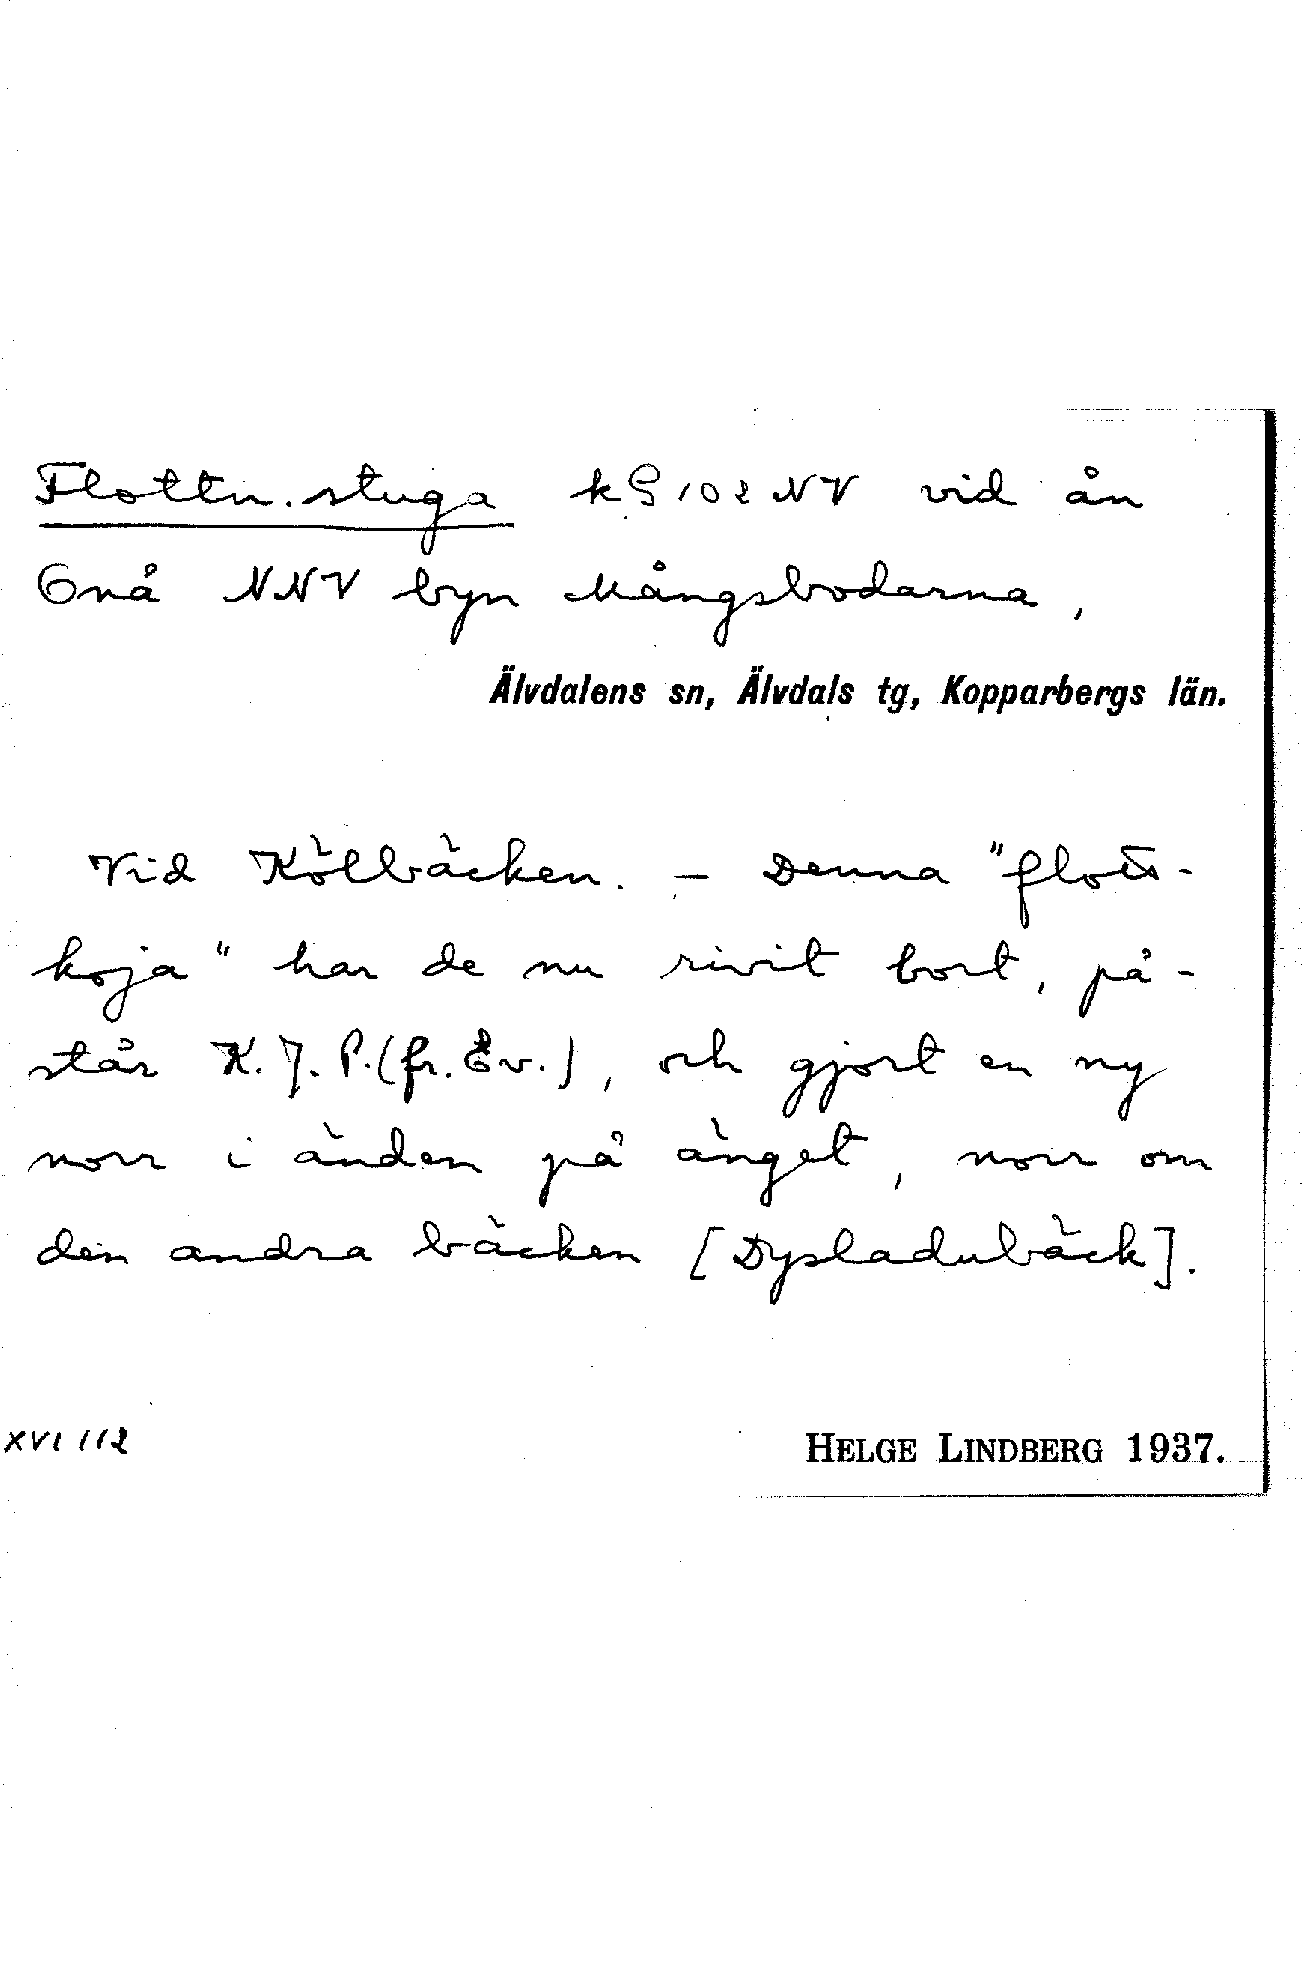 Flottn. stuga kG 102 NV vid ån
Onå NNV byn Mångsbodarna,
Älvdalens sn, Älvdals tg, Kopparbergs län.
Vid Kölbäcken. – Denna "flott-
koja" har de nu rivit bort, på-
står K. J. P. (fr. Ev.), och gjort en ny
norr i änden på änget, norr om
den andra bäcken [Dysladubäck].
XVI 112
HELGE LINDBERG 1937.